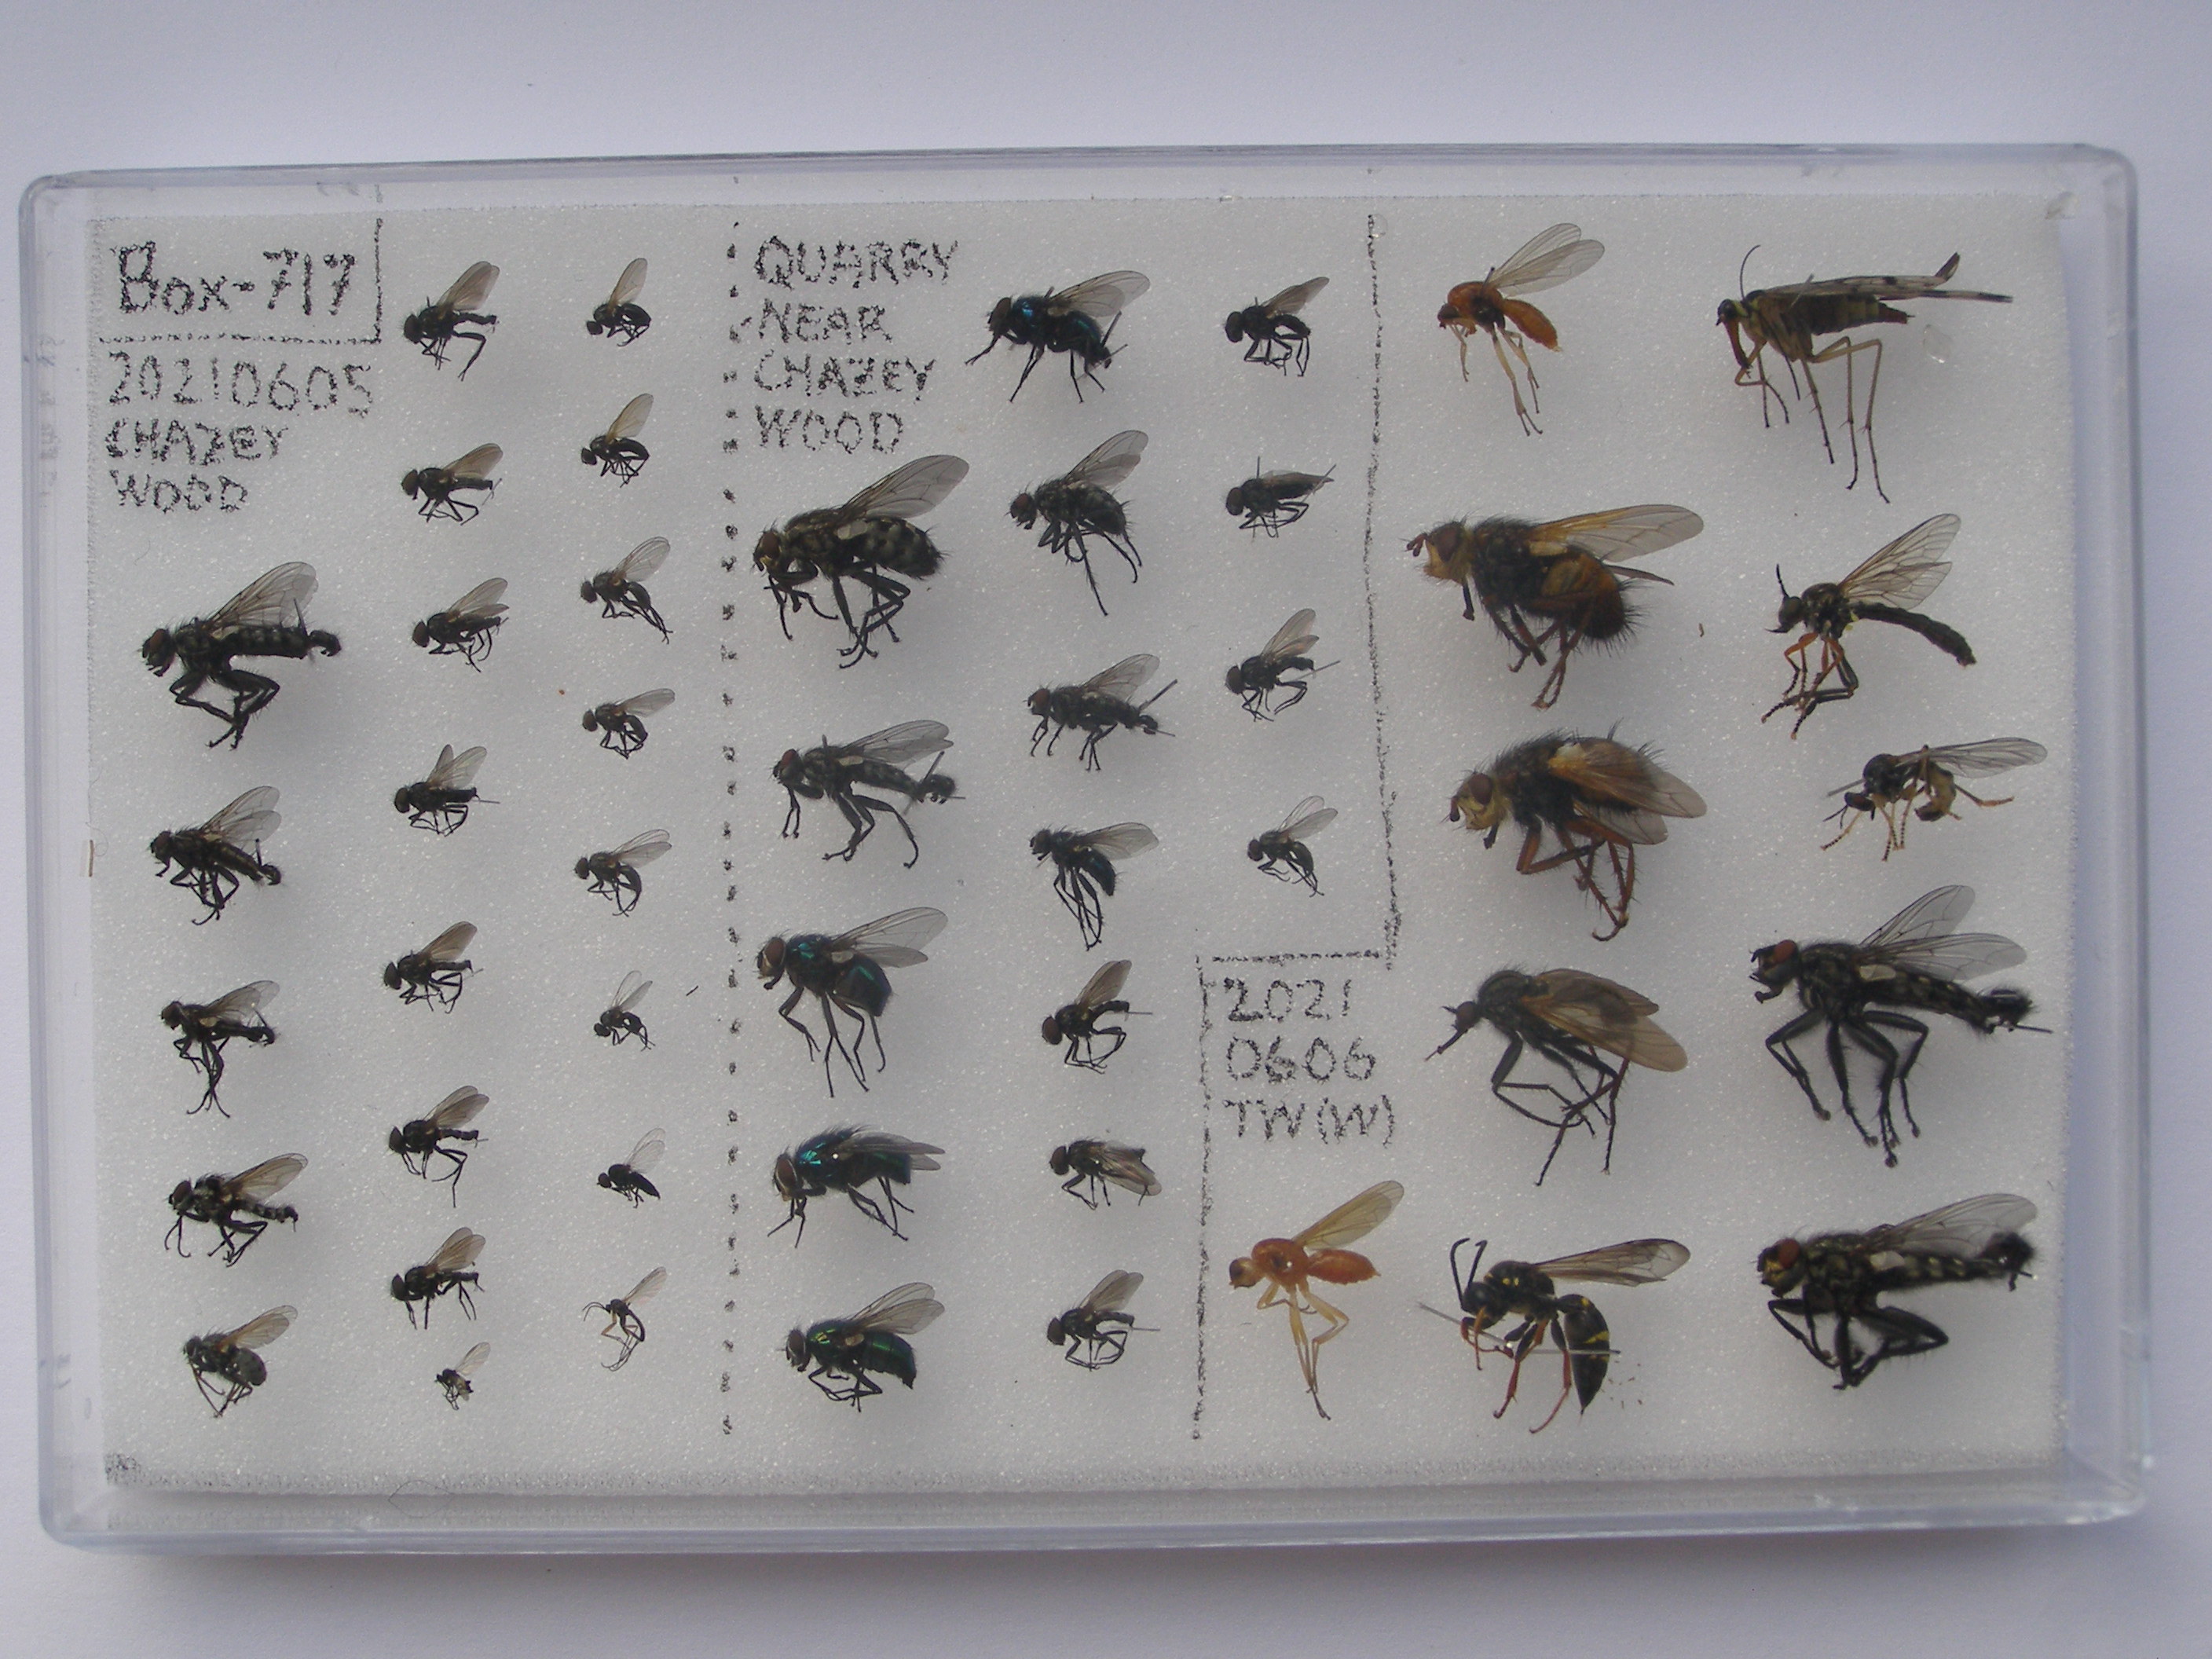 Box-717
20210605
CHAZEY
WOOD
QUARRY
NEAR
CHAZEY
WOOD
2021
0606
TW(W)